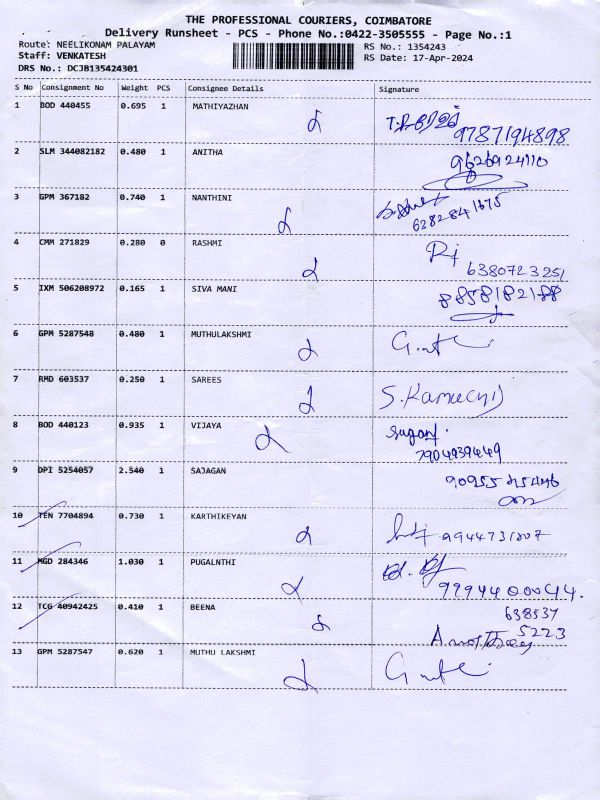 THE PROFESSIONAL COURIERS, COIMBATORE
Delivery Runsheet - PCS - Phone No.:0422-3505555 - Page No.:1
Route: NEELIKONAM PALAYAM RS No.: 1354243
Staff: VENKATESH RS Date: 17-Apr-2024
DRS No.: DCJB135424301
S No Consignment No Weight PCS Consignee Details Signature
1 BOD 440455 0.695 1 MATHIYAZHAN
9787194898
2 SLM 344082182 0.480 1 ANITHA 9626924110
3 GPM 367182 0.740 1 NANTHINI
6382841675
4 CMM 271829 0.280 0 RASHMI
6380723251
5 IXM 506208972 0.165 1 SIVA MANI 8858182188
6 GPM 5287548 0.480 1 MUTHULAKSHMI
7 RMD 603537 0.250 1 SAREES
8 BOD 440123 0.935 1 VIJAYA
7904939449
9 DPI 5254057 2.540 1 SAJAGAN
10 TEN 7704894 0.730 1 KARTHIKEYAN 9944731807
11 MGD 284346 1.030 1 PUGALNTHI
12 TCG 40942425 0.410 1 BEENA 638537
5223
13 GPM 5287547 0.620 1 MUTHU LAKSHMI